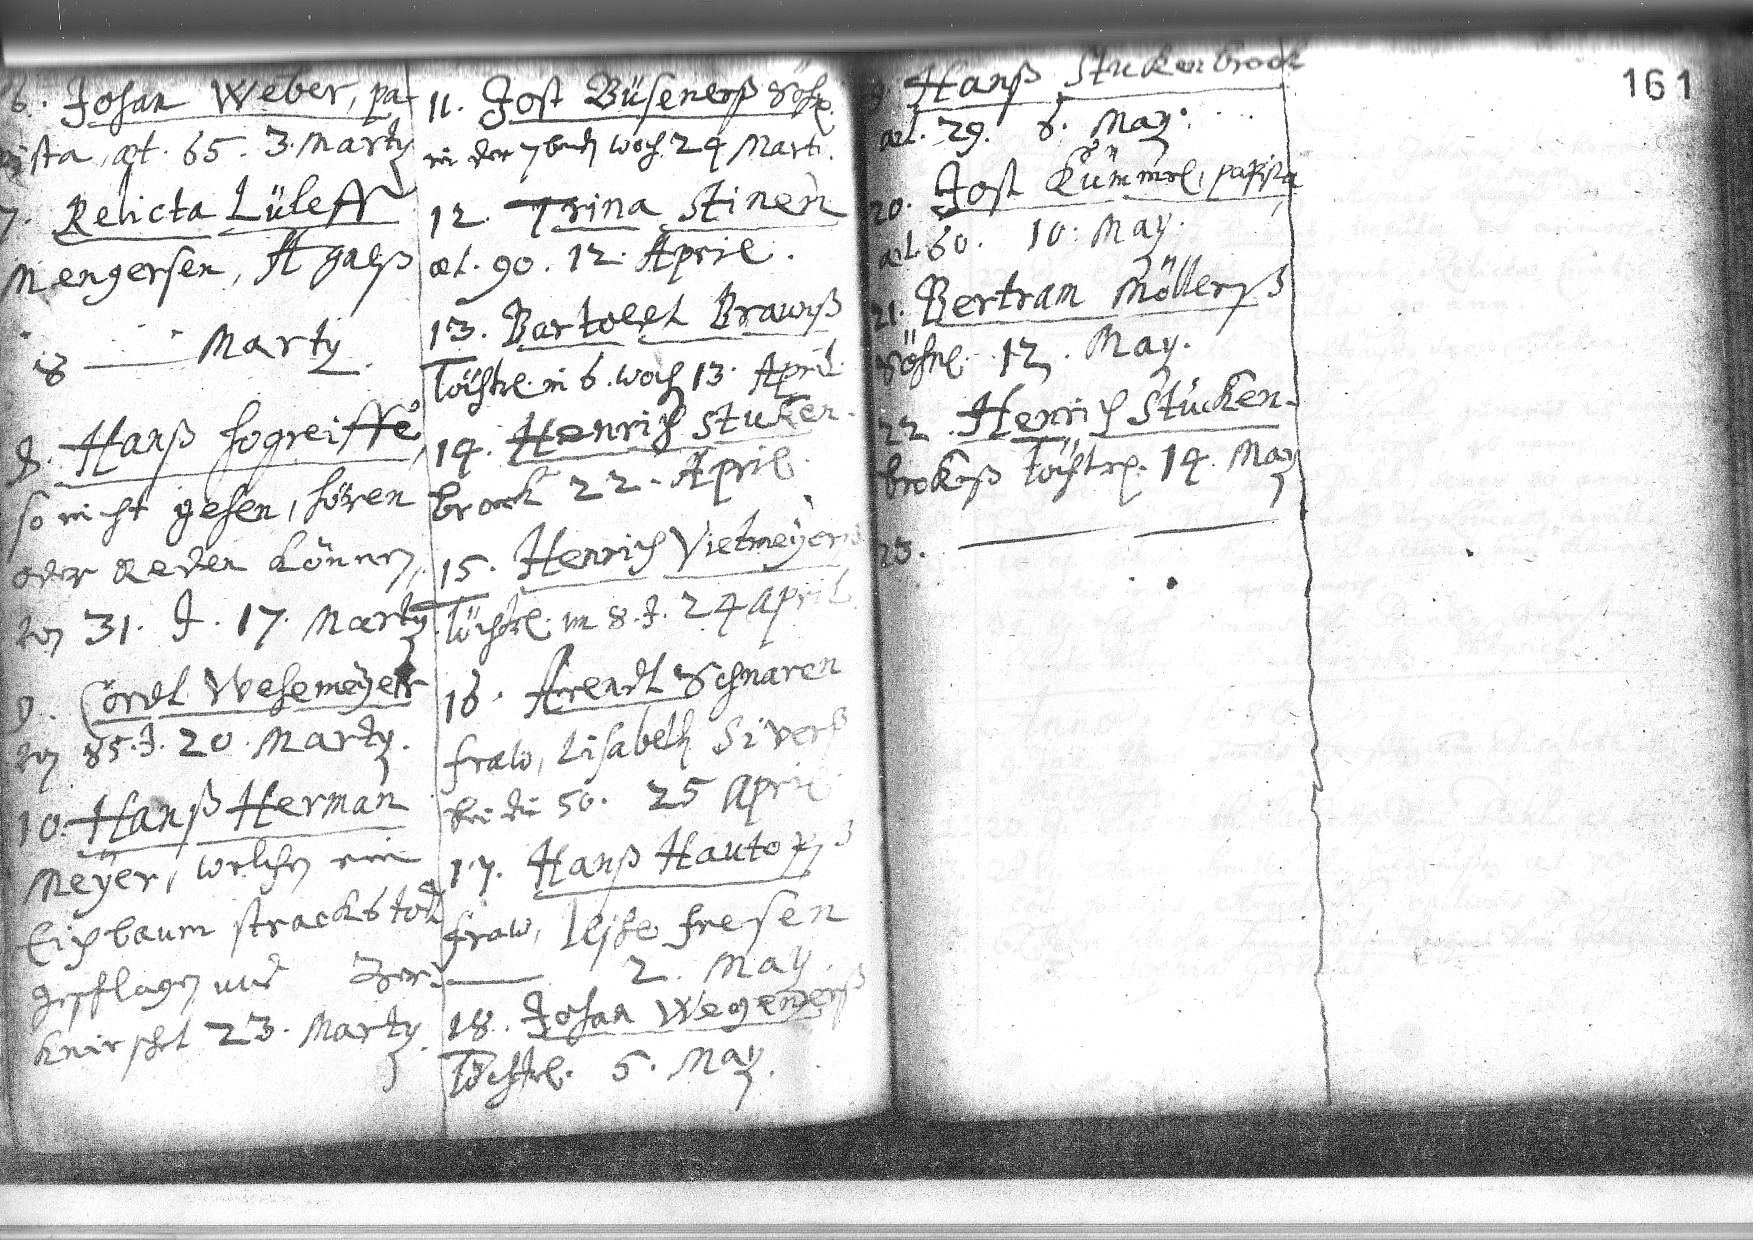 6. Johan Weber, pa-
pista, æt. 65. 3. Marty
7. Relicta Lüleff
Mengersen, Agneß
8 — Marty.
8. Hanß Hogreiffe,
so nicht gehen, hören
oder Reden können,
31. J. 17. Marty
9. Cordt Wesemeyer
85. J. 20. Marty.
10. Hanß Herman
Meyer, welchen ein
Eichbaum stracks todt
geschlagen und Zer-
knirschet 23. Marty.
11. Jost Büseners Söhnl.
in der 7ben woch. 24 Marti.
12. Trina Stinen
æt. 90. 12. April.
13. Bartoldt Brawnß
Töchtel. in 6. woch 13. April.
14. Henrich Stuken-
brock 22. April.
15. Henrich Vietmeyers
Töchtel. im 8. J. 24 April
16. Arendt Schnaren
fraw, Lisabeth Sivers
bei die 50. 25 April
17. Hanß Hautopß
fraw, Ilse fresen
— 2. May.
18. Johan Wegenerß
Töchtel. 5. May.
Hanß Stukenbrock
æt. 29. 6. May.
20. Jost Kümmel, papista
æt. 60. 10. May.
21. Bertram Möllerß
Söhnl. 12. May.
22. Henrich Stücken-
brokß Töchtel. 14. May
23. —
161